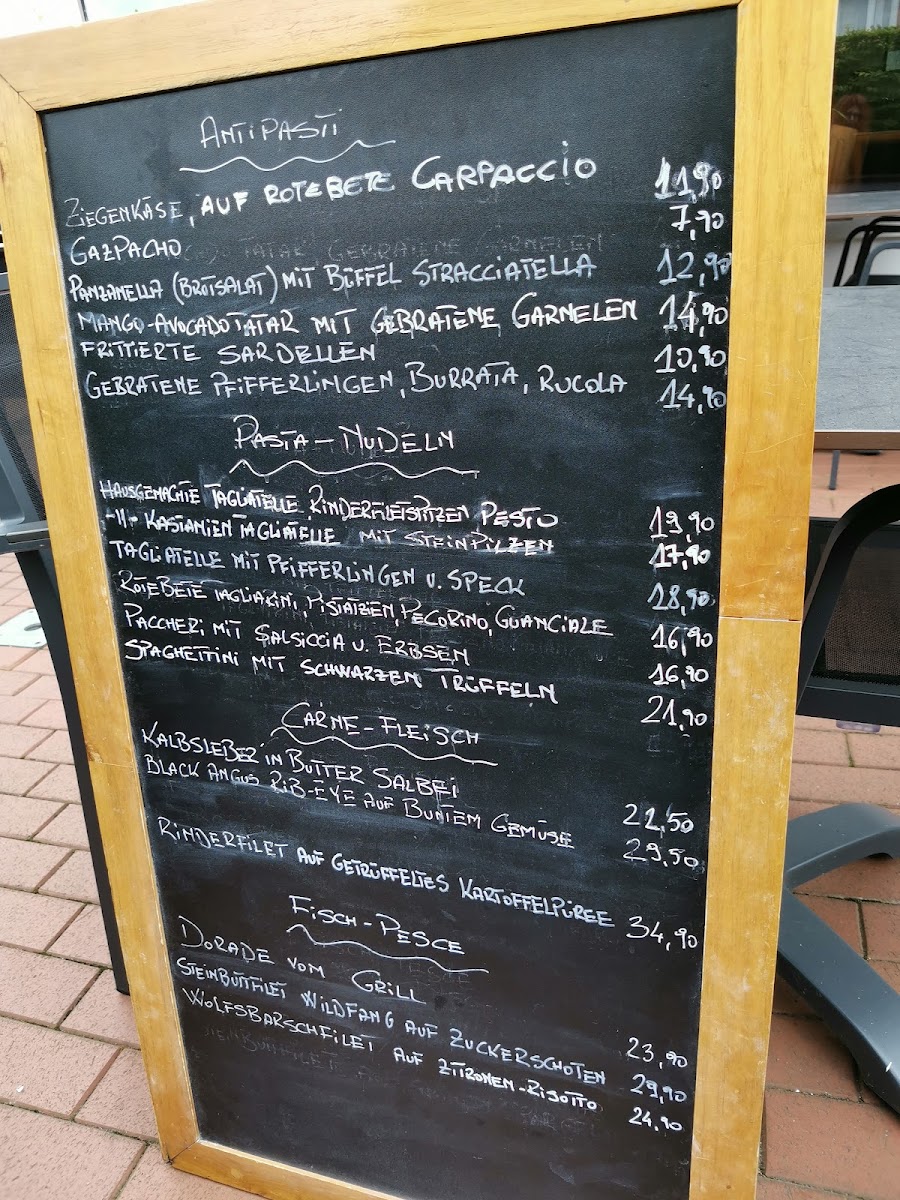 ANTIPASTI
ZIEGENKÄSE, AUF ROTEBETE CARPACCIO 11,90
GAZPACHO 7,90
PANZANELLA (BROTSALAT) MIT BÜFFEL STRACCIATELLA 12,90
MANGO-AVOCADOTATAR MIT GEBRATENE GARNELEN 14,90
FRITTIERTE SARDELLEN 10,90
GEBRATENE PFIFFERLINGEN, BURRATA, RUCOLA 14,90
PASTA-NUDELN
HAUSGEMACHTE TAGLIATELLE, RINDERFILETSPITZEN, PESTO 19,90
-11- KASTANIEN TAGLIATELLE MIT STEINPILZEN 17,90
TAGLIATELLE MIT PFIFFERLINGEN U. SPECK 18,90
ROTEBETE TAGLIARINI, PISTAZIEN, PECORINO, GUANCIALE 16,90
PACCHERI MIT SALSICCIA U. ERBSEN 16,90
SPAGHETTINI MIT SCHWARZEN TRÜFFELN 21,90
CARNE-FLEISCH
KALBSLEBER IN BUTTER SALBEI 22,50
BLACK ANGUS RIB-EYE AUF BUNTEM GEMÜSE 29,50
RINDERFILET AUF GETRÜFFELTES KARTOFFELPÜREE 34,90
FISCH-PESCE
DORADE VOM GRILL 23,90
STEINBUTTFILET WILDFANG AUF ZUCKERSCHOTEN 29,90
WOLFSBARSCHFILET AUF ZITRONEN-RISOTTO 24,90